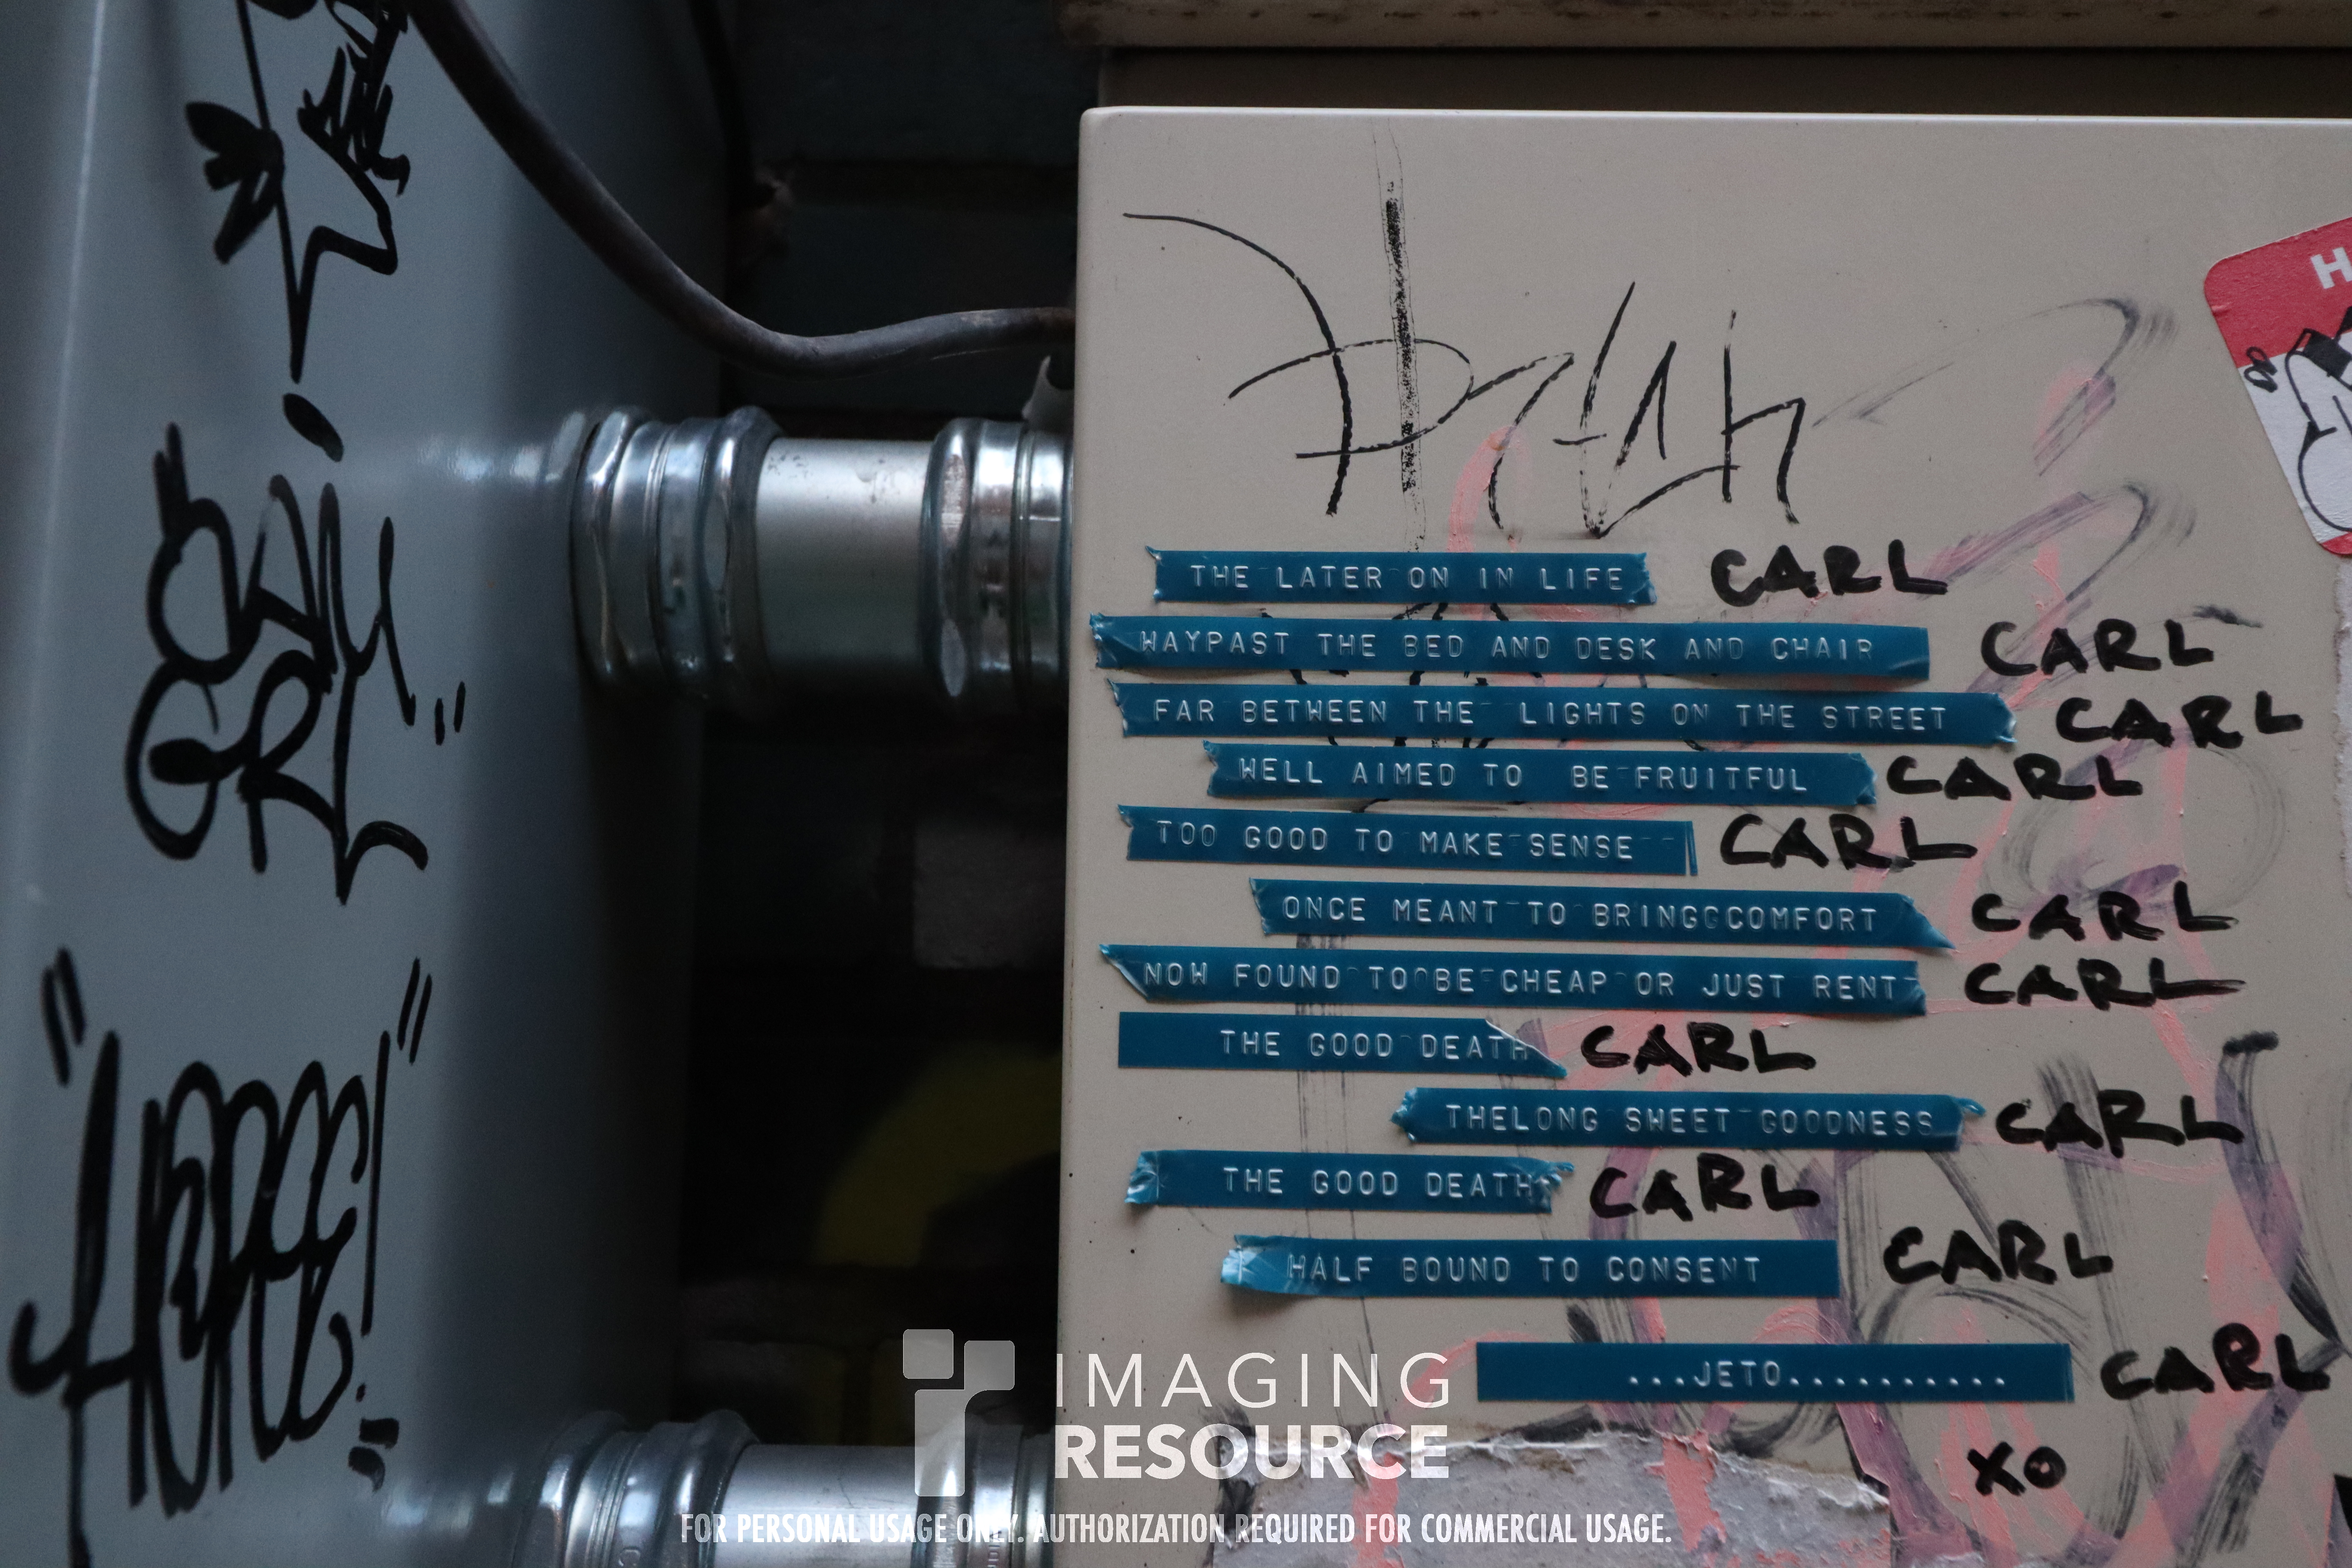 H
THE LATER ON IN LIFE CARL
WAYPAST THE BED AND DESK AND CHAIR CARL
FAR BETWEEN THE LIGHTS ON THE STREET CARL
WELL AIMED TO BE FRUITFUL CARL
TOO GOOD TO MAKE SENSE CARL
ONCE MEANT TO BRINGGCOMFORT CARL
NOW FOUND TO BE CHEAP OR JUST RENT CARL
THE GOOD DEATH CARL
THELONG SWEET GOODNESS CARL
THE GOOD DEATH CARL
HALF BOUND TO CONSENT CARL
...JETO........... CARL
XO
IMAGING
RESOURCE
FOR PERSONAL USAGE ONLY. AUTHORIZATION REQUIRED FOR COMMERCIAL USAGE.